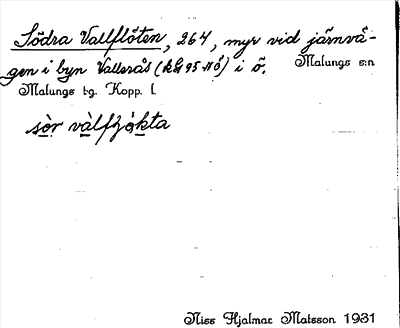 Södra Vallflöten, 264, myr vid järnvä-
gen i byn Vallerås (kbl 95 NÖ) i ö. Malungs s:n
Malungs tg. Kopp. l.
sòr vàlfʒòkta
Niss Hjalmar Matsson 1931